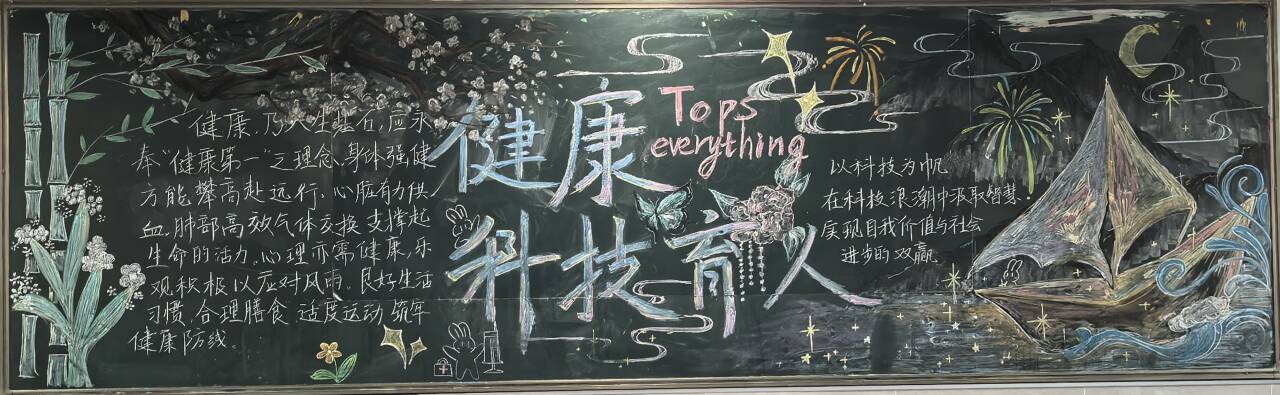 健康,乃人生基石,应永
奉“健康第一”之理念,身体强健
方能攀高赴远行.心脏有力供
血,肺部高效气体交换,支撑起
生命的活力,心理亦需健康,乐
观积极以应对风雨.良好生活
习惯,合理膳食,适度运动,筑牢
健康防线。
健康
Tops
everything
科技育人
以科技为帆
在科技浪潮中汲取智慧.
实现自我价值与社会
进步的双赢